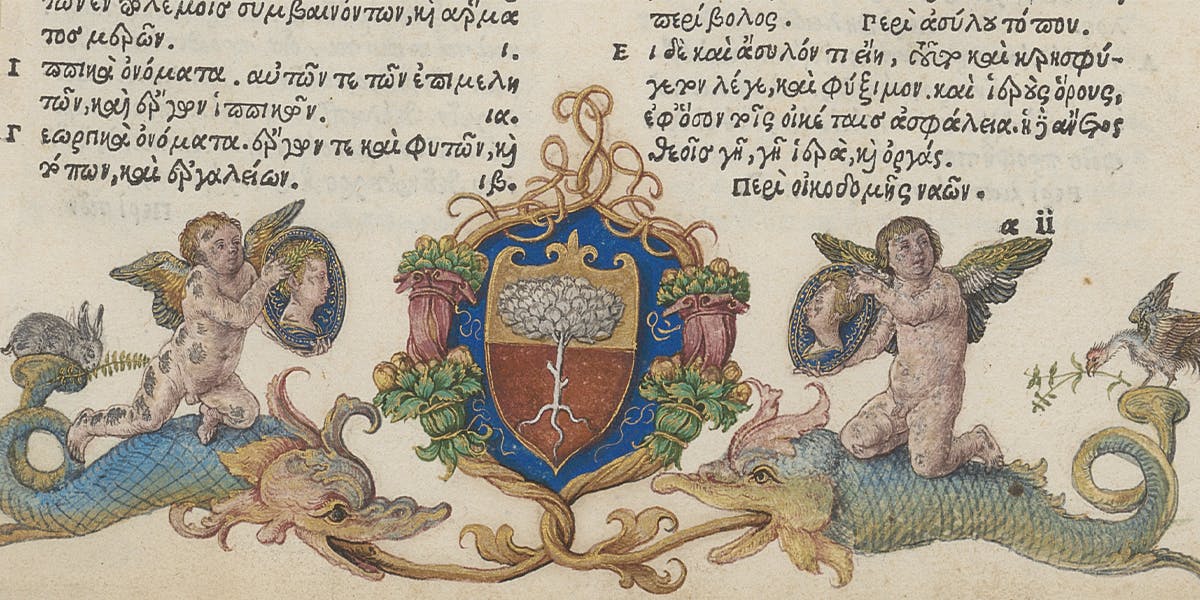 των ἐν πολέμοις συμβαινόντων, καὶ ἅρμα
τος μερῶν. ι.
Ἱππικὰ ὀνόματα. αὐτῶν τε τῶν ἐπιμελη
τῶν, καὶ ἔργων ἱππικῶν. ια.
Γεωργικὰ ὀνόματα. ἔργων τε καὶ φυτῶν, καὶ
καὶ ἐργαλείων. ιβ.
περίβολος. Περὶ ἀσύλου τόπου.
Εἰ δὲ καὶ ἄσυλόν τι εἴη, καὶ κρησφύ-
γετον λέγε, καὶ φύξιμον. καὶ ἱεροὺς ὅρους,
ἐφ' ὅσον τοῖς οἰκέταις ἀσφάλεια. ἡ
θεοῖς γῆ, γῆ ἱερὰ, καὶ ὀργάς.
Περὶ οἰκοδομῆς ναῶν.
a ii